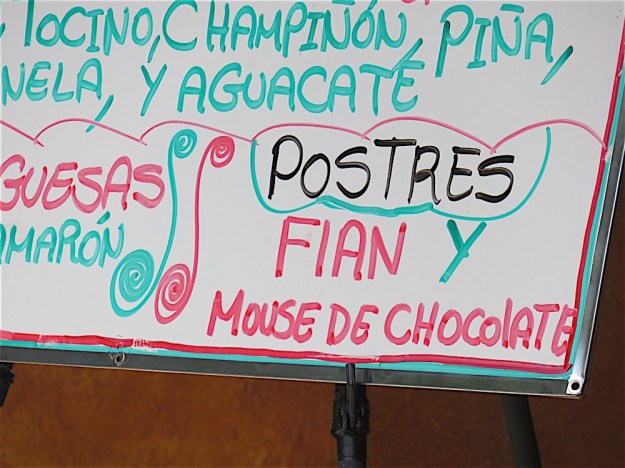 , TOCINO, CHAMPIÑÓN, PIÑA,
NELA, Y AGUACATE
GUESAS
AMARÓN
POSTRES
FlAN Y
MOUSE DE CHOCOlATE